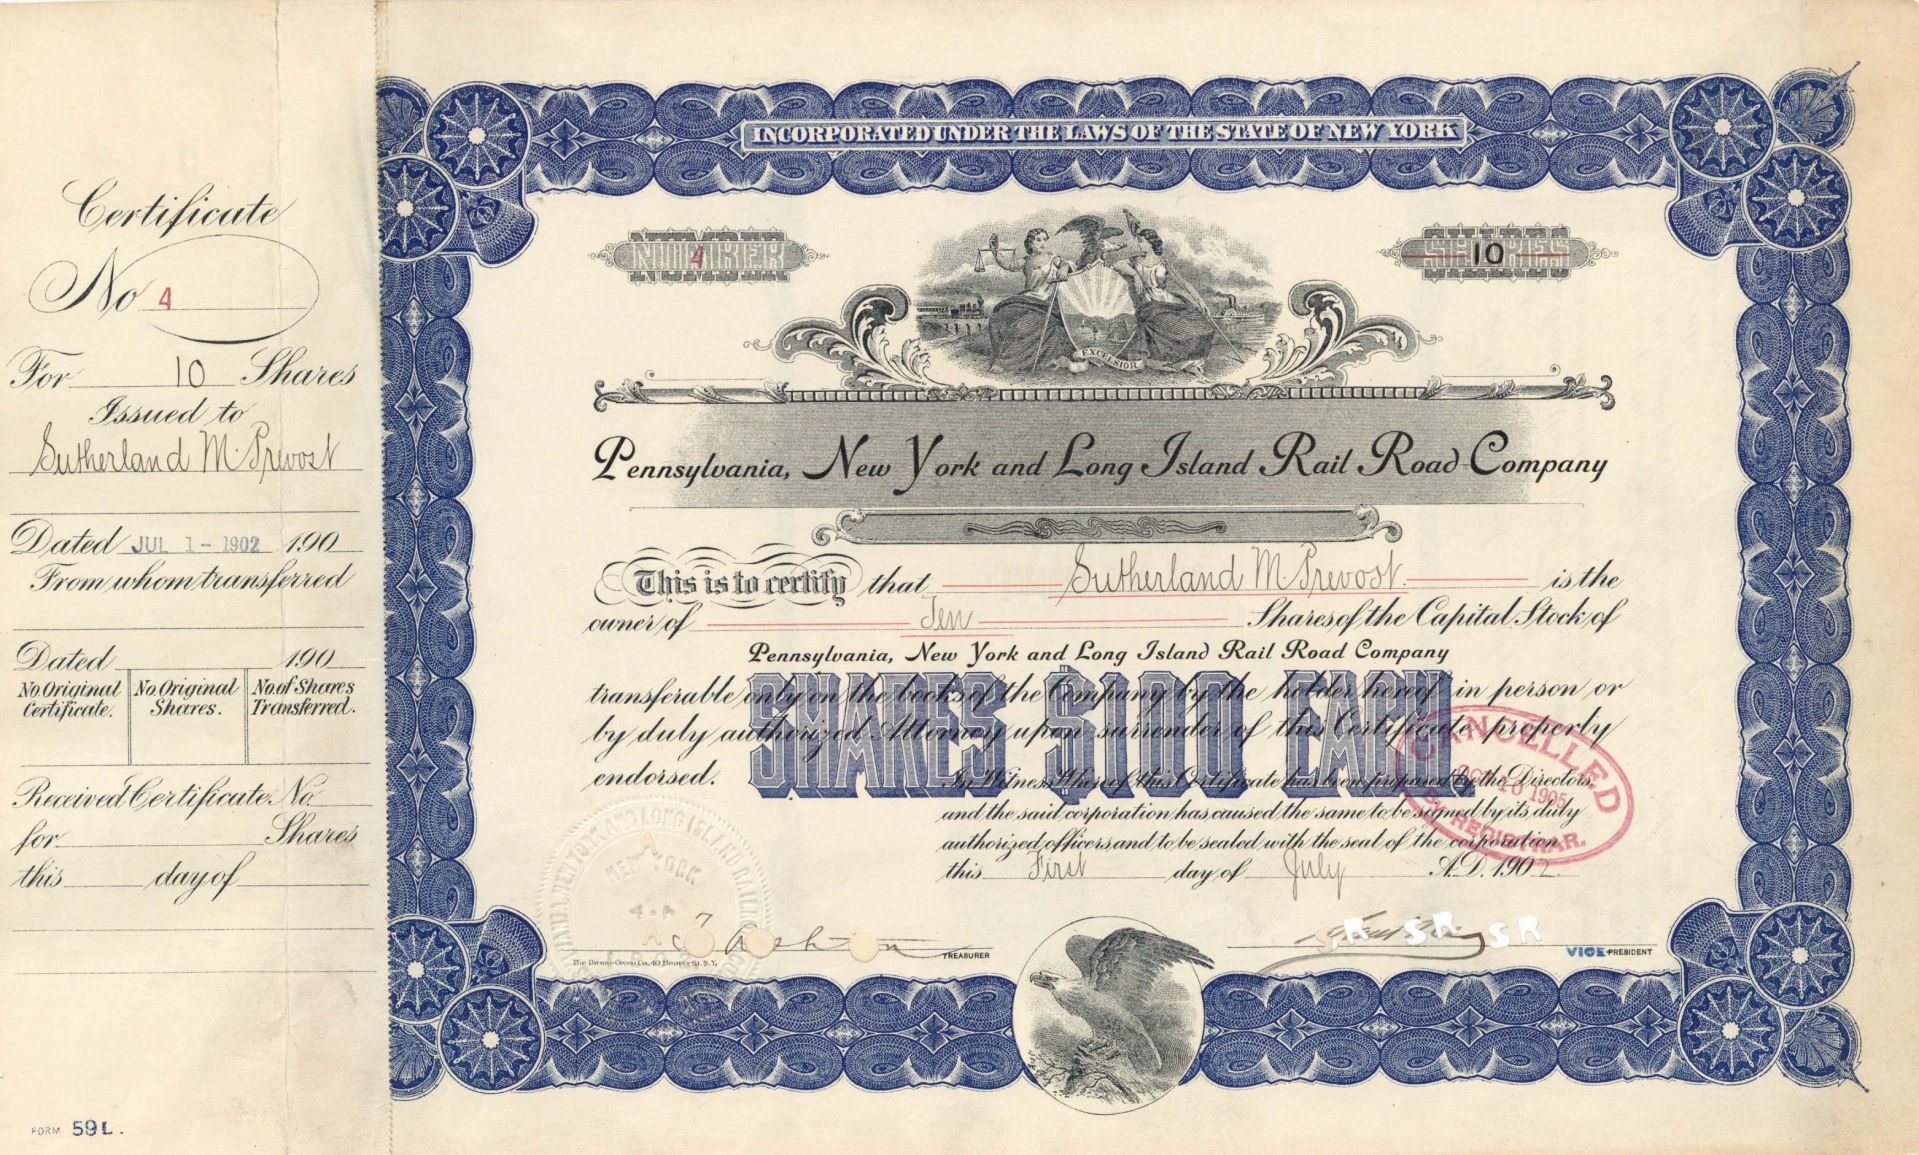 Certificate
No 4
For 10 Shares
Issued to
Sutherland M. Prevost
Dated JUL 1 - 1902 190
From whom transferred
Dated 190
No. Original Certificate.
No. Original Shares.
No. of Shares Transferred.
Received Certificate No.
for Shares
this day of
FORM 59L.
INCORPORATED UNDER THE LAWS OF THE STATE OF NEW YORK
NUMBER 4
SHARES 10
EXCELSIOR
Pennsylvania, New York and Long Island Rail Road Company
This is to certify that Sutherland M. Prevost is the
owner of Ten Shares of the Capital Stock of
Pennsylvania, New York and Long Island Rail Road Company
transferable only on the books of the Company by the holder hereof in person or
by duly authorized Attorney upon surrender of this Certificate properly
endorsed.
SHARES $100 EACH
In Witness Whereof this Certificate has been prepared by the Directors,
and the said corporation has caused the same to be signed by its duly
authorized officers and to be sealed with the seal of the corporation
this First day of July A.D. 1902
CANCELLED
1905
BY REGISTRAR.
NEW YORK
TREASURER
SR SR SR
VICE PRESIDENT
The Broun-Green Co. 40 Beaver St. N.Y.